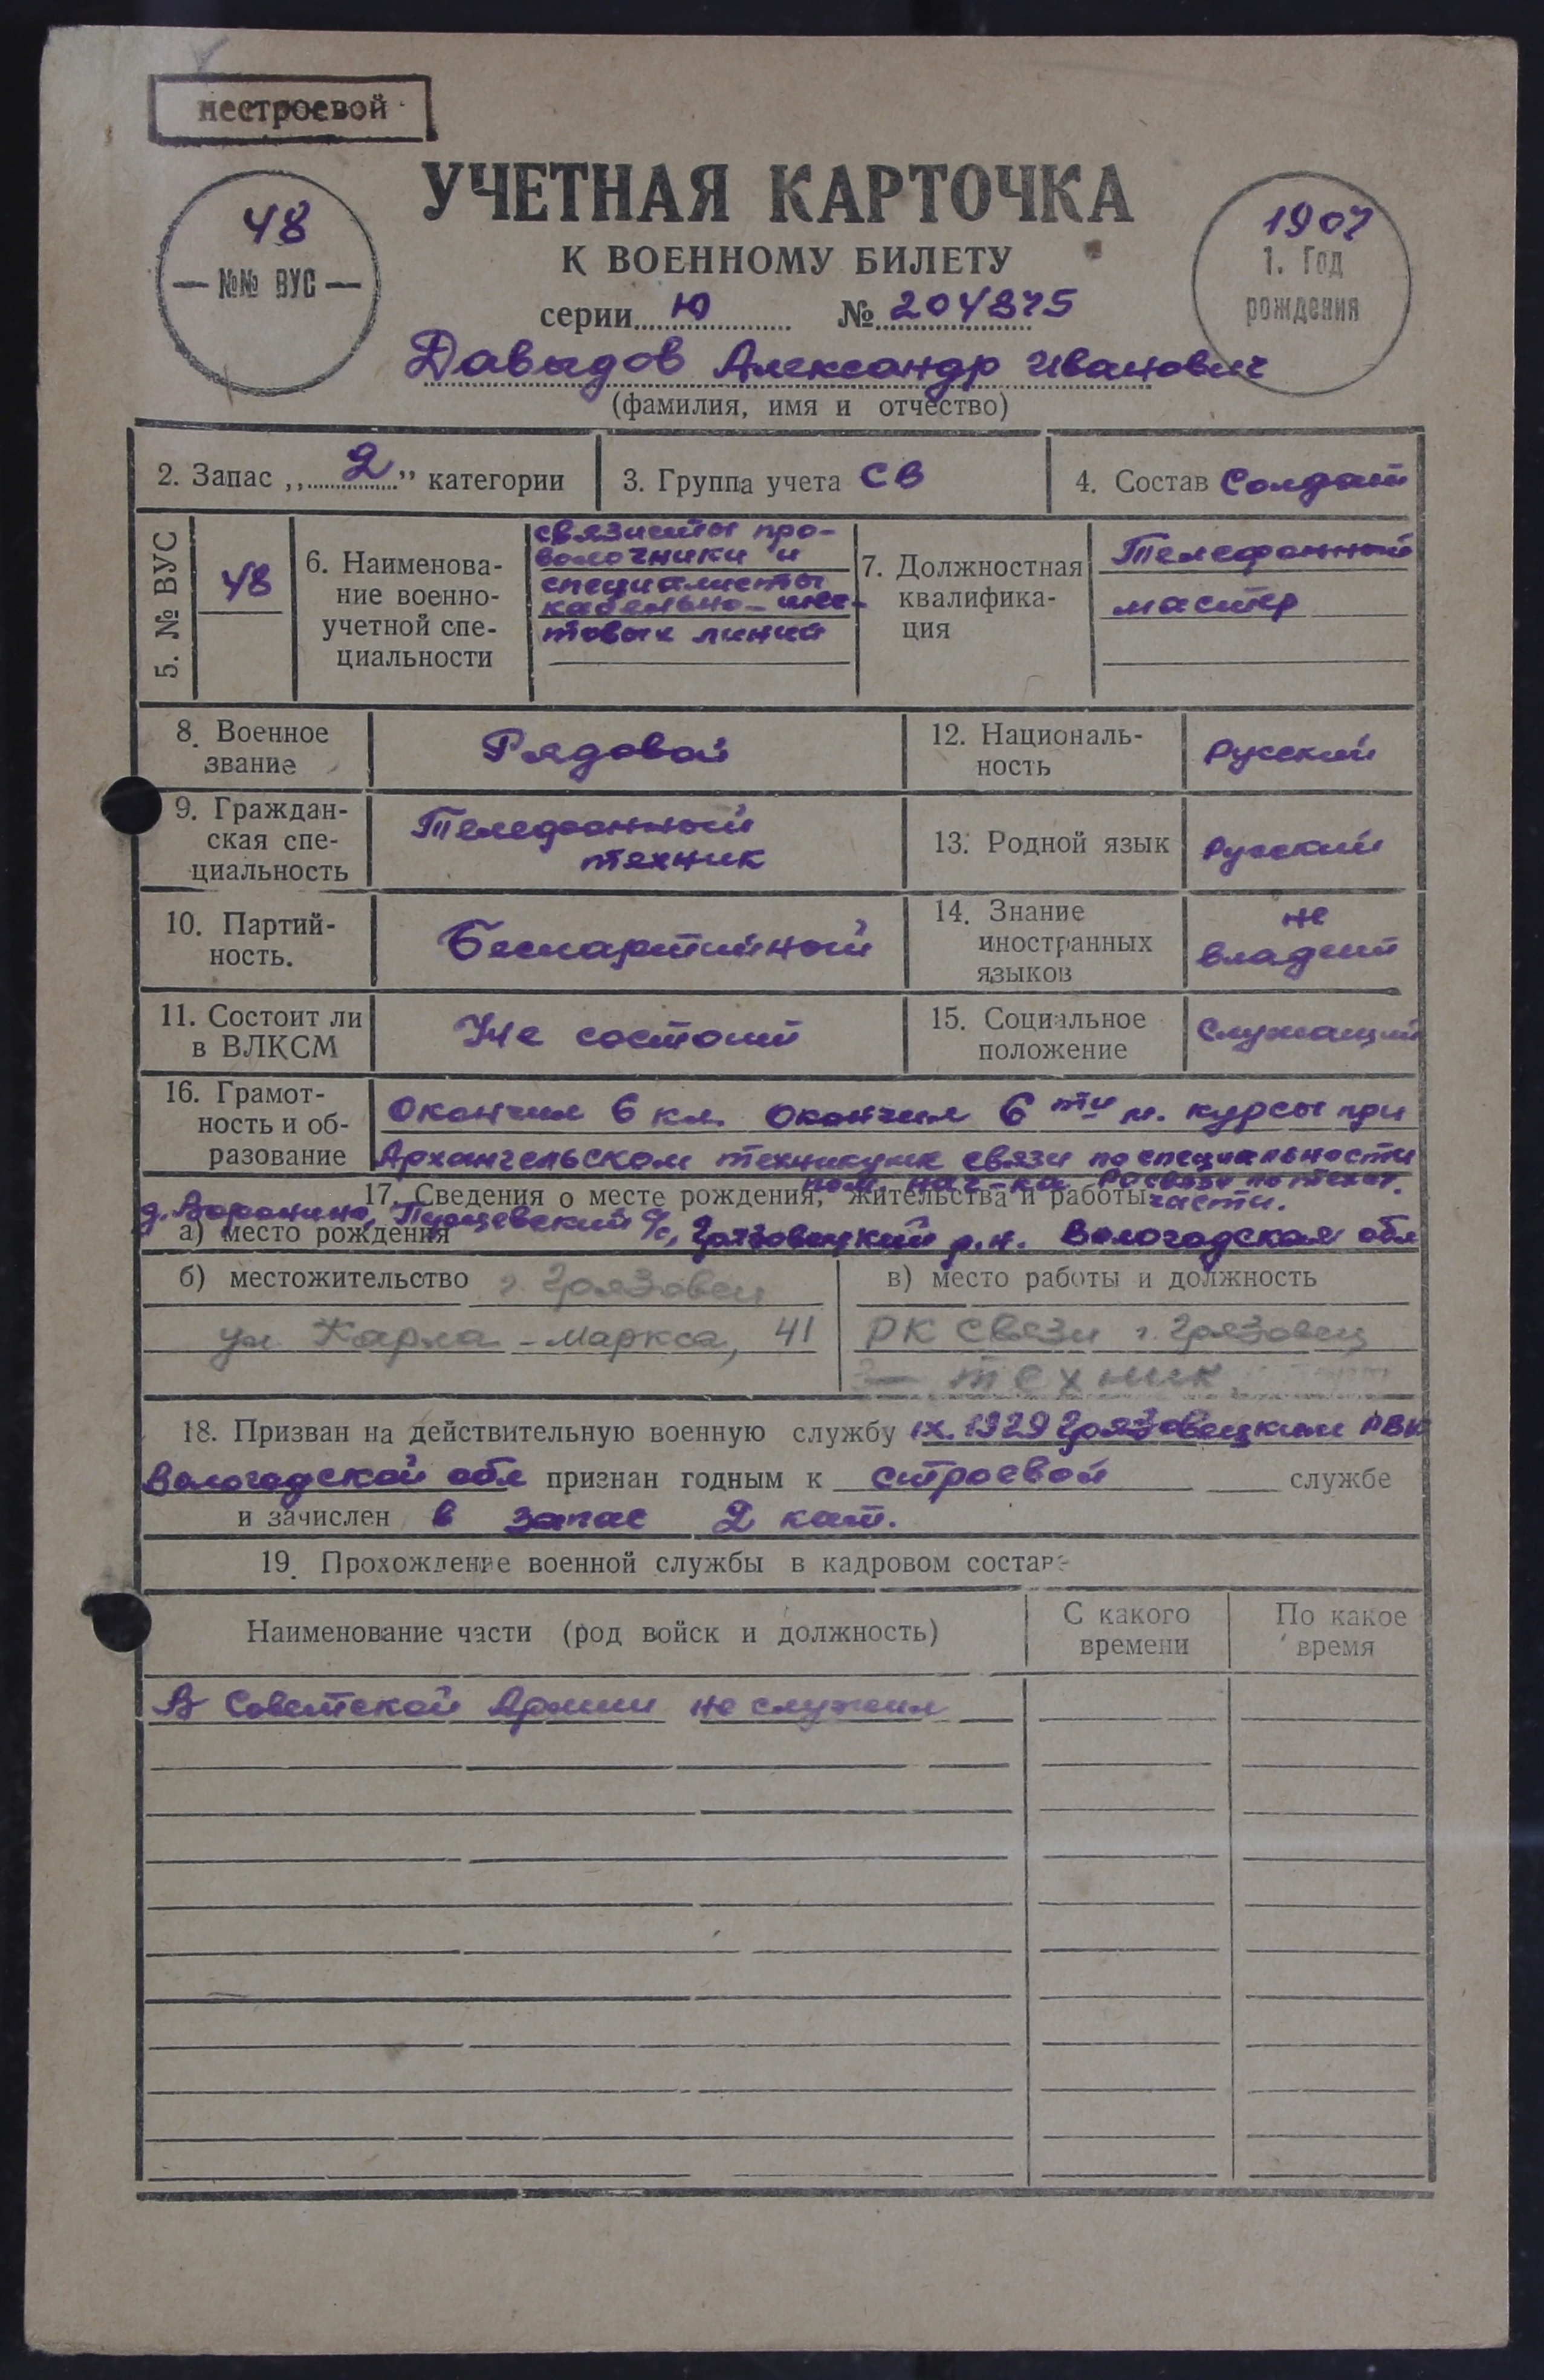 нестроевой
УЧЕТНАЯ КАРТОЧКА
К ВОЕННОМУ БИЛЕТУ
48
— №№ ВУС —
1907
1. Год
рождения
серии Ю № 204875
Давыдов Александр Иванович
(фамилия, имя и отчество)
2. Запас „ 2 ” категории
3. Группа учета СВ
4. Состав Солдат
5. № ВУС
48
6. Наименова-
ние военно-
учетной спе-
циальности
связисты про-
волочники и
специалисты
кабельно-шес-
товых линий
7. Должностная
квалифика-
ция
Телефонный
мастер
8. Военное
звание
Рядовой
12. Националь-
ность
Русский
9. Граждан-
ская спе-
циальность
Телефонный
техник
13. Родной язык
Русский
10. Партий-
ность.
Беспартийный
14. Знание
иностранных
языков
не
владеет
11. Состоит ли
в ВЛКСМ
Не состоит
15. Социальное
положение
Служащий
16. Грамот-
ность и об-
разование
Окончил 6 кл. Окончил 6 ти м. курсы при
Архангельском техникуме связи по специальности
пом. нач-ка по технич.
части.
17. Сведения о месте рождения, жительства и работы
д. Воронино, с/с, Грязовецкий р.н. Вологодская обл
а) место рождения
б) местожительство г. Грязовец
ул. Карла-Маркса, 41
в) место работы и должность
РК связи г. Грязовец
техник
18. Призван на действительную военную службу IX.1929 Грязовецким РВК
Вологодской обл признан годным к строевой службе
и зачислен в запас 2 кат.
19. Прохождение военной службы в кадровом составе
Наименование части (род войск и должность)
С какого
времени
По какое
время
В Советской Армии не служил